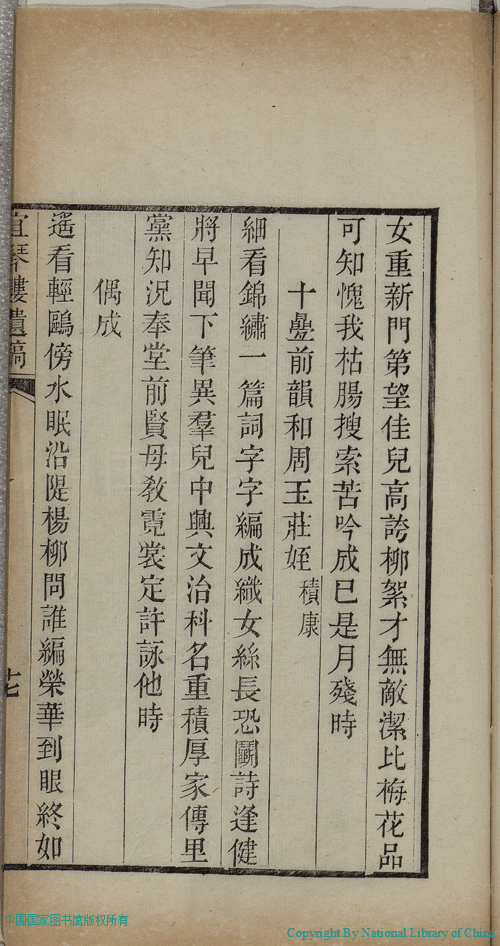 女重新門第望佳兒高誇柳絮才無敵潔比梅花品
可知愧我枯腸搜索苦吟成已是月殘時
十疊前韻和周玉莊姪積康
細看錦繡一篇詞字字編成織女絲長恐鬭詩逢健
將早聞下筆異羣兒中興文治科名重積厚家傳里
黨知況奉堂前賢母教霓裳定許詠他時
偶成
遙看輕鷗傍水眠沿隄楊柳問誰編榮華到眼終如
宜琴樓遺稿
十七
中国国家图书馆版权所有
Copyright By National Library of China